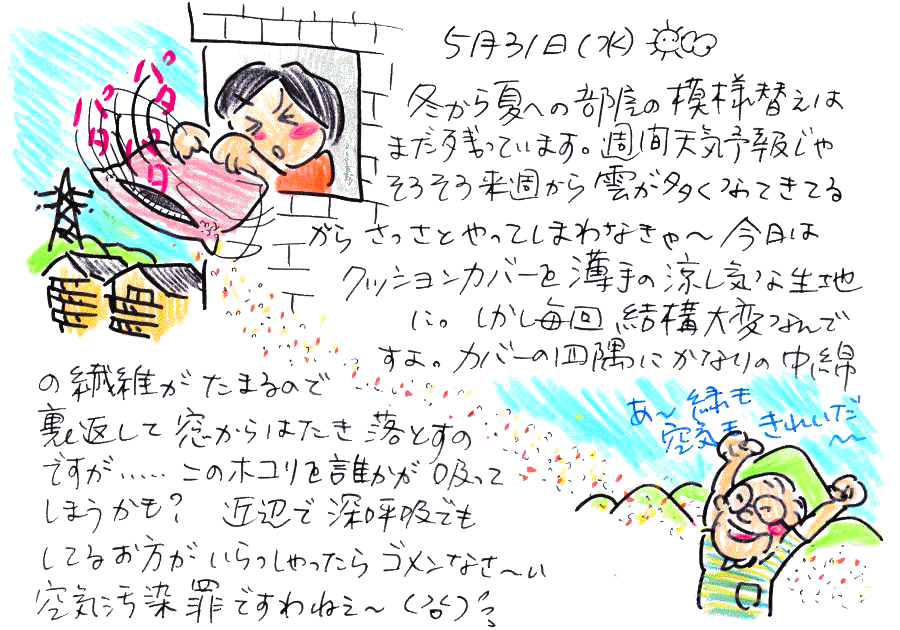 5月31日(水)
冬から夏への部屋の模様替えは
まだ残っています。週間天気予報じゃ
そろそろ来週から雲が多くなってきてる
からさっさとやってしまわなきゃ〜今日は
クッションカバーを薄手の涼し気な生地
に。しかし毎回結構大変なんで
すよ。カバーの四隅にかなりの中綿
の繊維がたまるので
裏返して窓からはたき落とすの
ですが……このホコリを誰かが吸って
しまうかも？近辺で深呼吸でも
してるお方がいらっしゃったらゴメンなさ〜い
空気汚染罪ですわねェ〜
パタ
パタ
パタ
あ〜緑も
空気もきれいだ
〜〜